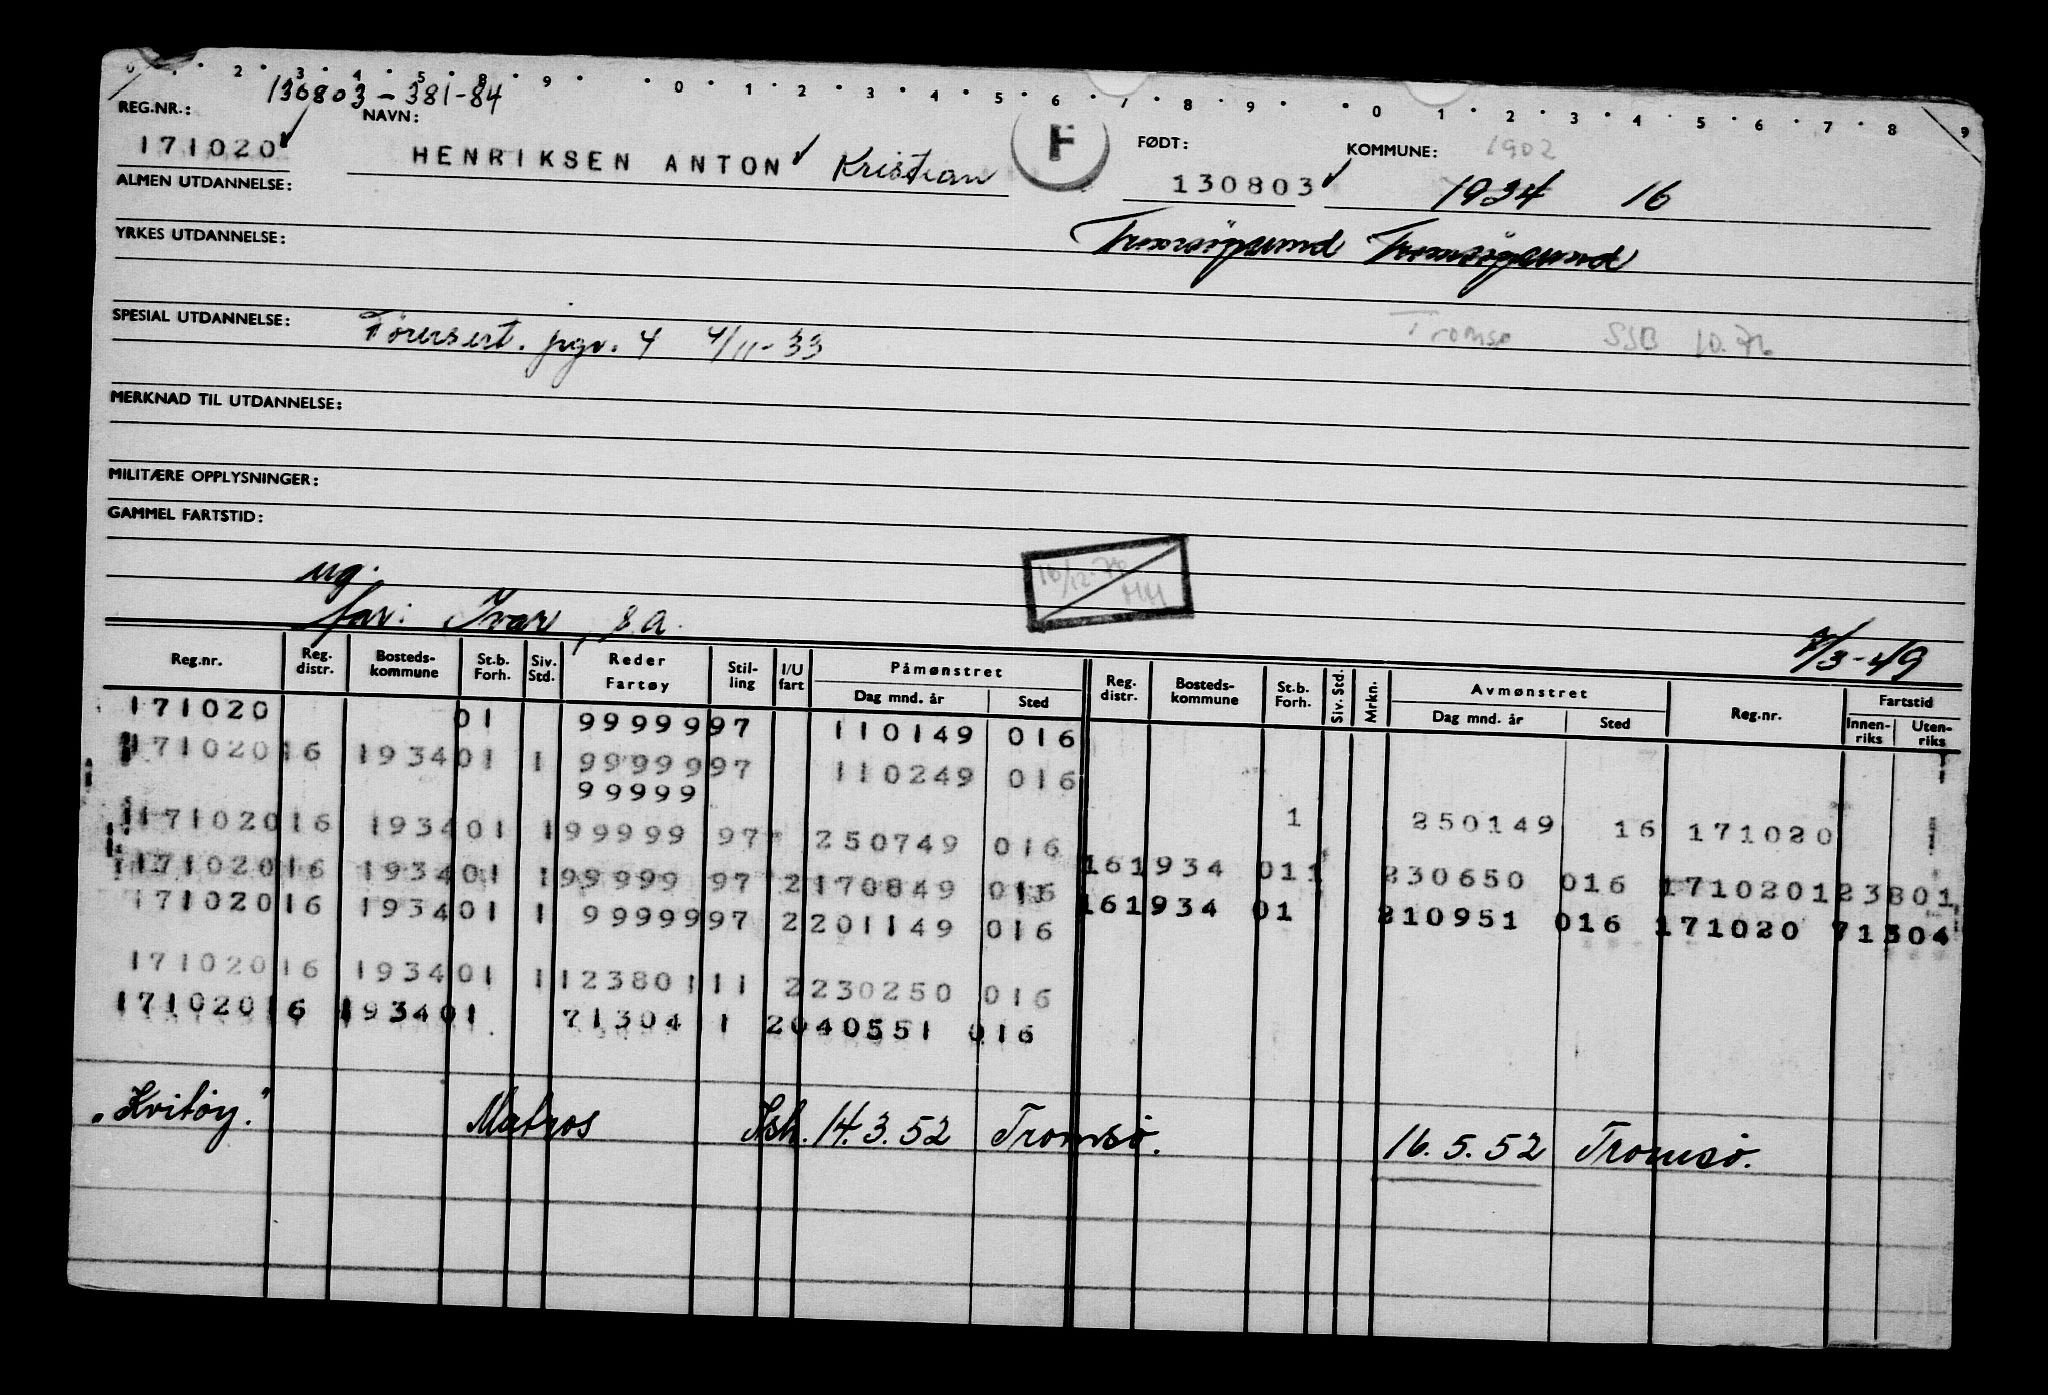 0 . . 2 . 3 . 4 . 5 . 8 . 9 . . 0 . 1 . 2 . 3 . 4 . 5 . 6 . 7 . 8 . 9 . . 0 . 1 . 2 . 3 . 4 . 5 . 6 . 7 . 8 . 9
130803-381-84
REG.NR.: NAVN: FØDT: KOMMUNE: 1902
171020 HENRIKSEN ANTON Kristian F 130803 1934 16
ALMEN UTDANNELSE:
Tromsöysund Tromsöysund
YRKES UTDANNELSE:
SPESIAL UTDANNELSE: Førersert. pgr. 4 4/11-33 Tromsø SSB 10.76
MERKNAD TIL UTDANNELSE:
MILITÆRE OPPLYSNINGER:
GAMMEL FARTSTID:
16/12-76 HH
ug.
far: Ivar, s.a. 7/3-49
Reg.nr. Reg. distr. Bosteds- kommune St.b. Forh. Siv. Std. Reder Fartøy Stil- ling I/U fart Påmønstret Dag mnd. år Sted Reg. distr. Bosteds- kommune St.b. Forh. Siv. Std. Mrkn. Avmønstret Dag mnd. år Sted Reg.nr. Fartstid Innen- riks Uten- riks
171020 01 99999 97 110149 016
171020 16 1934 01 1 99999 97 110249 016
99999
1 250149 16 171020
171020 16 1934 01 1 99999 97 250749 016
16 1934 01 1 230650 016 171020 123801
171020 16 1934 01 1 99999 97 2 170849 016
16 1934 01 210951 016 171020 71304
171020 16 1934 01 1 99999 97 2 201149 016
171020 16 1934 01 1 123801 11 2 230250 016
171020 16 1934 01 71304 11 2 040551 016
"Kvitøy." Matros Ish. 14.3.52 Tromsö. 16.5.52 Tromsö.